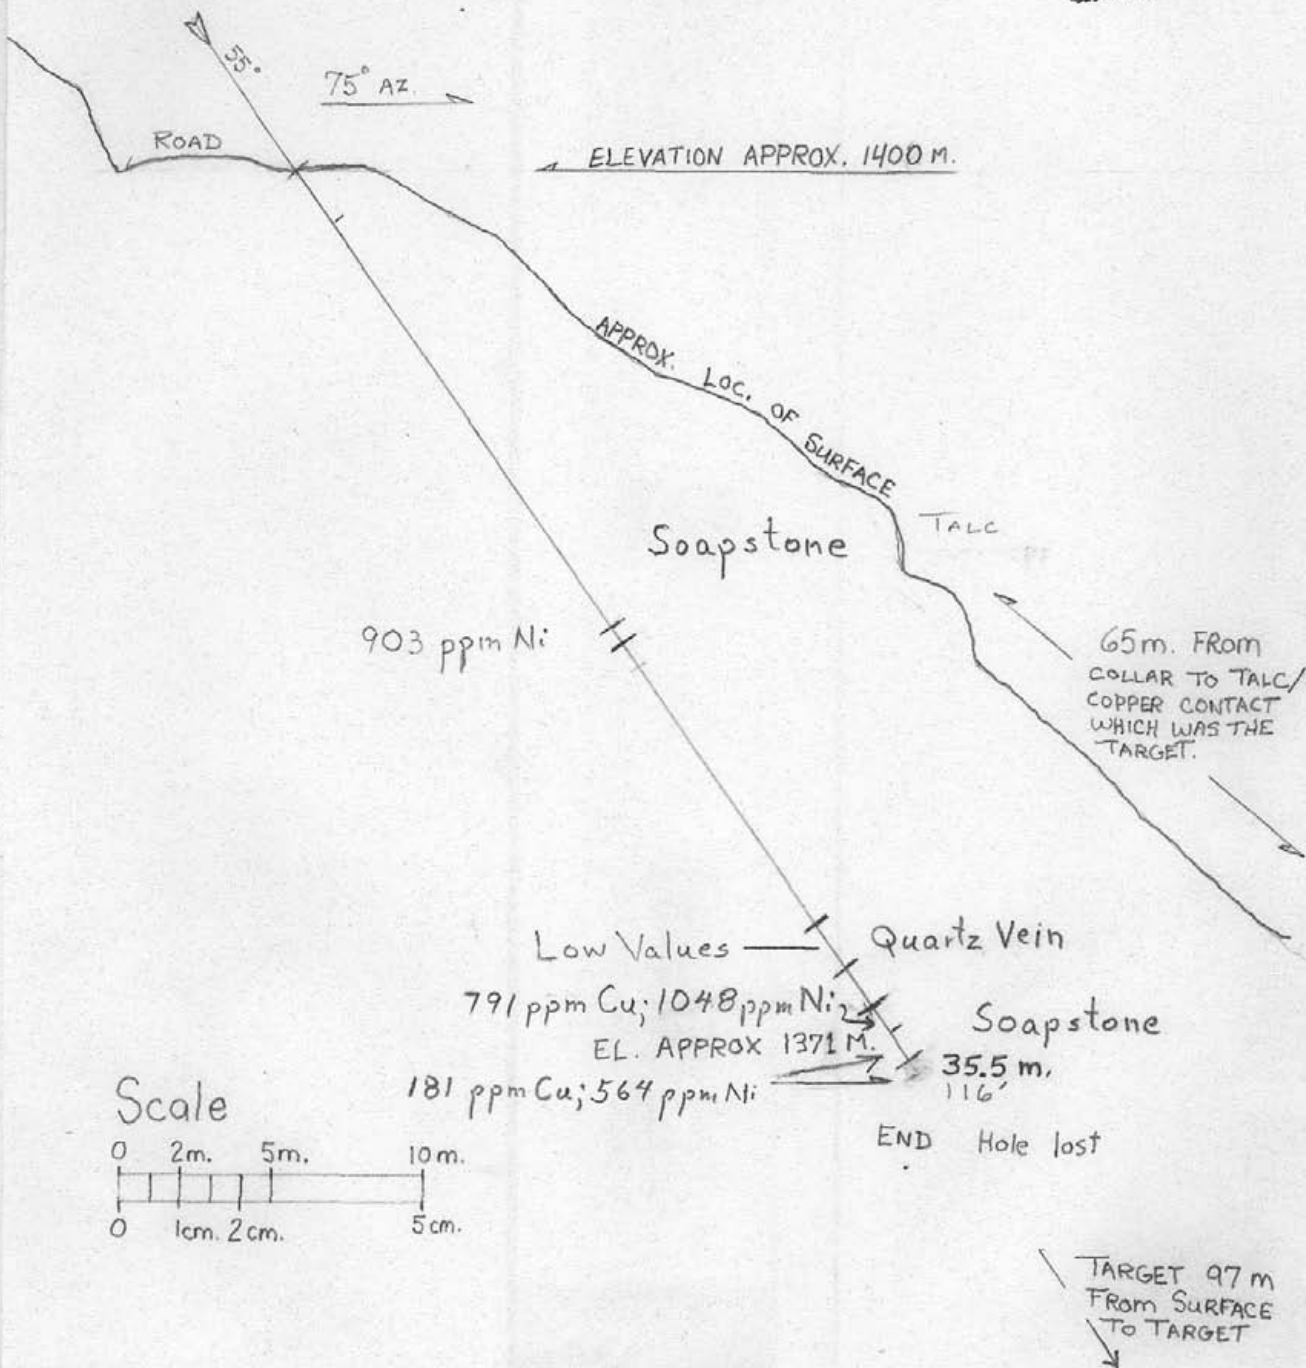 55°
75° AZ.
ROAD
ELEVATION APPROX. 1400 M.
APPROX. LOC. OF SURFACE
TALC
Soapstone
903 ppm Ni
65m. FROM
COLLAR TO TALC/
COPPER CONTACT
WHICH WAS THE
TARGET.
Low Values
Quartz Vein
791 ppm Cu; 1048 ppm Ni
Soapstone
EL. APPROX 1371 M.
35.5 m.
181 ppm Cu; 564 ppm Ni
116'
END Hole lost
Scale
0 2m. 5m. 10m.
0 1cm. 2cm. 5cm.
TARGET 97 m
FROM SURFACE
TO TARGET